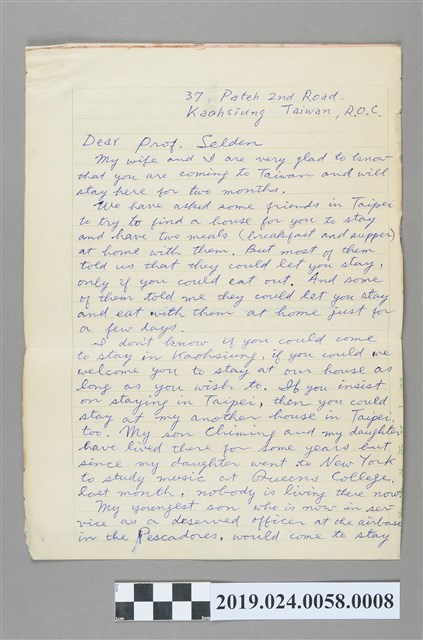 37, Pateh 2nd Road.
Kaohsiung Taiwan, R.O.C.
Dear Prof. Selden
My wife and I are very glad to know
that you are coming to Taiwan and will
stay here for two months.
We have asked some friends in Taipei
to try to find a house for you to stay
and have two meals (breakfast and supper)
at home with them. But most of them
told us that they could let you stay,
only if you could eat out. And some
of them told me they could let you stay
and eat with them at home just for
a few days.
I don't know if you could come
to stay in Kaohsiung, if you could we
welcome you to stay at our house as
long as you wish to. If you insist
on staying in Taipei, then you could
stay at my another house in Taipei,
too. My son Chiming and my daughter
have lived there for some years but
since my daughter went to New York
to study music at Queens College,
last month, nobody is living there now.
My youngest son who is now in ser-
vice as a deserved officer at the airbase
in the Pescadores, would come to stay
1cm
5cm
2019.024.0058.0008